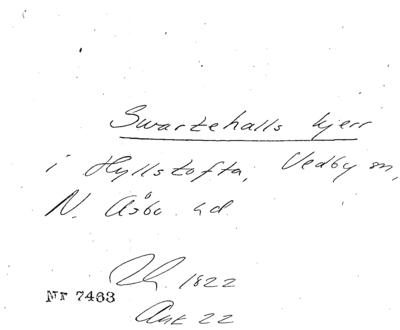 Swartehalls kjerr
i Hyllstofta, Vedby sn,
N. Åsbo hd
1822
Nr 7463
Ank 22